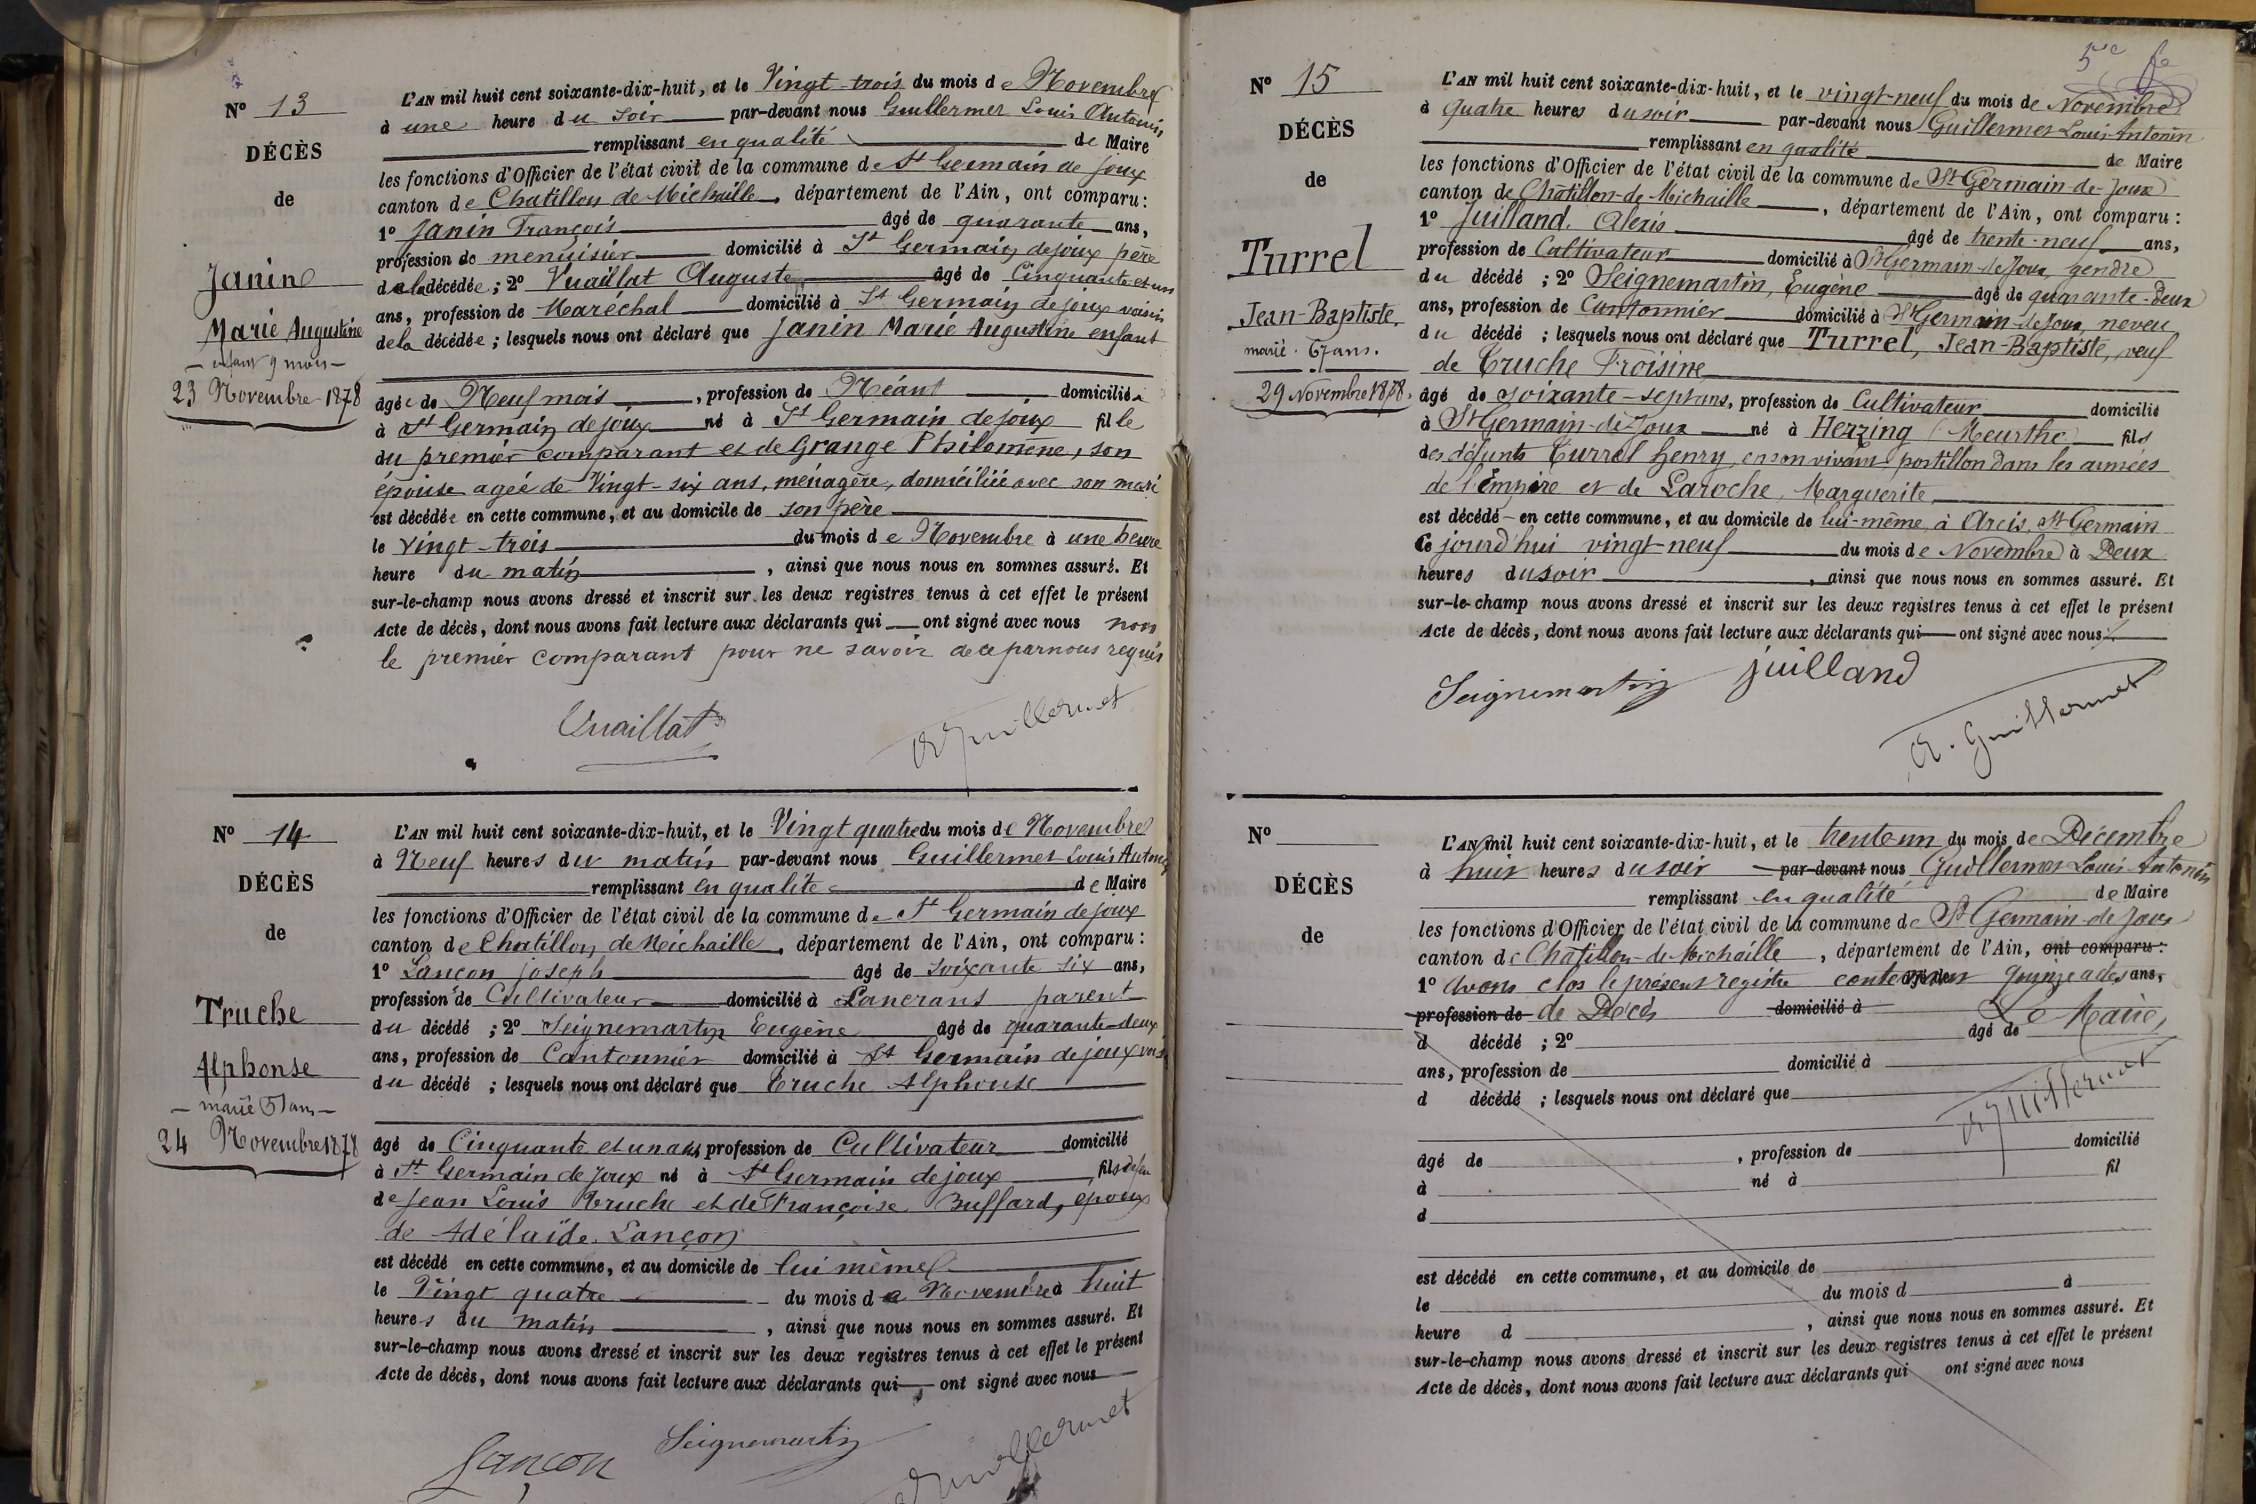 N° 13
DÉCÈS
de
Janin
Marie Augustine
— enfant 9 mois —
23 Novembre 1878
L'AN mil huit cent soixante-dix-huit, et le Vingt-trois du mois de Novembre
à une heure du soir par-devant nous Guillermet Louis Antonin
remplissant en qualité de Maire
les fonctions d'Officier de l'état civil de la commune de St Germain de joux
canton de Chatillon de Michaille, département de l'Ain, ont comparu :
1° Janin François âgé de quarante ans,
profession de menuisier domicilié à St Germain de joux père
de la décédée ; 2° Vuaillat Auguste âgé de Cinquante et un
ans, profession de Maréchal domicilié à St Germain de joux voisin
de la décédée ; lesquels nous ont déclaré que Janin Marie Augustine enfant
âgée de Neuf mois, profession de Néant domiciliée
à St Germain de joux né à St Germain de joux fille
du premier comparant et de Grange Philomène, son
épouse agée de Vingt-six ans, ménagère, domiciliée avec son mari
est décédée en cette commune, et au domicile de son père
le Vingt-trois du mois de Novembre à une heure
heure du matin, ainsi que nous nous en sommes assuré. Et
sur-le-champ nous avons dressé et inscrit sur les deux registres tenus à cet effet le présent
Acte de décès, dont nous avons fait lecture aux déclarants qui ont signé avec nous non
le premier comparant pour ne savoir de ce par nous requis
Vuaillat
A Guillermet
N° 14
DÉCÈS
de
Truche
Alphonse
— marié 51 ans —
24 Novembre 1878
L'AN mil huit cent soixante-dix-huit, et le Vingt quatre du mois de Novembre
à Neuf heures du matin par-devant nous Guillermet Louis Antonin
remplissant en qualité de Maire
les fonctions d'Officier de l'état civil de la commune de St Germain de joux
canton de Chatillon de Michaille, département de l'Ain, ont comparu :
1° Lançon joseph âgé de soixante six ans,
profession de Cultivateur domicilié à Lancrans parent
du décédé ; 2° Seignemartin Eugène âgé de quarante-deux
ans, profession de Cantonnier domicilié à St Germain de joux voisin
du décédé ; lesquels nous ont déclaré que Truche Alphonse
âgé de Cinquante et un ans, profession de Cultivateur domicilié
à St Germain de Joux né à St Germain de joux fils de feu
de Jean Louis Truche et de Françoise Buffard, époux
de Adélaïde Lançon
est décédé en cette commune, et au domicile de lui même
le Vingt quatre du mois de Novembre à huit
heures du matin, ainsi que nous nous en sommes assuré. Et
sur-le-champ nous avons dressé et inscrit sur les deux registres tenus à cet effet le présent
Acte de décès, dont nous avons fait lecture aux déclarants qui ont signé avec nous
Lançon
Seignemartin
A Guillermet
5e
N° 15
DÉCÈS
de
Turrel
Jean-Baptiste,
marié. 67 ans.
29 Novembre 1878.
L'AN mil huit cent soixante-dix-huit, et le vingt-neuf du mois de Novembre
à quatre heures du soir par-devant nous Guillermet Louis-Antonin
remplissant en qualité de Maire
les fonctions d'Officier de l'état civil de la commune de St Germain-de-Joux
canton de Chatillon-de-Michaille, département de l'Ain, ont comparu :
1° Juilland. Alexis âgé de trente-neuf ans,
profession de Cultivateur domicilié à St Germain-de-Joux, gendre
du décédé ; 2° Seignemartin, Eugène âgé de quarante-deux
ans, profession de Cantonnier domicilié à St Germain-de-Joux, neveu
du décédé ; lesquels nous ont déclaré que Turrel, Jean-Baptiste, veuf
de Truche Froisine
âgé de soixante-sept ans, profession de Cultivateur domicilié
à St Germain-de-Joux né à Herzing (Meurthe) fils
des défunts Turrel henry, en son vivant postillon dans les armées
de l'Empire et de Laroche, Marguerite
est décédé en cette commune, et au domicile de lui-même à Arcis, St Germain
Ce jourd'hui vingt-neuf du mois de Novembre à Deux
heures du soir, ainsi que nous nous en sommes assuré. Et
sur-le-champ nous avons dressé et inscrit sur les deux registres tenus à cet effet le présent
Acte de décès, dont nous avons fait lecture aux déclarants qui ont signé avec nous
Seignemartin juilland
A. Guillermet
N°
DÉCÈS
de
L'AN mil huit cent soixante-dix-huit, et le trente un du mois de Décembre
à huit heures du soir par-devant nous Guillermet Louis-Antonin
remplissant en qualité de Maire
les fonctions d'Officier de l'état civil de la commune de St Germain-de-Joux
canton de Chatillon-de-Michaille, département de l'Ain, ont comparu :
1° Avons clos le présent registre contenant quinze actes ans,
profession de de Décès domicilié à Le Maire,
d décédé ; 2° âgé de
ans, profession de domicilié à
d décédé ; lesquels nous ont déclaré que
A Guillermet
âgé de , profession de domicilié
à né à fil
d
est décédé en cette commune, et au domicile de
le du mois d à
heure d , ainsi que nous nous en sommes assuré. Et
sur-le-champ nous avons dressé et inscrit sur les deux registres tenus à cet effet le présent
Acte de décès, dont nous avons fait lecture aux déclarants qui ont signé avec nous